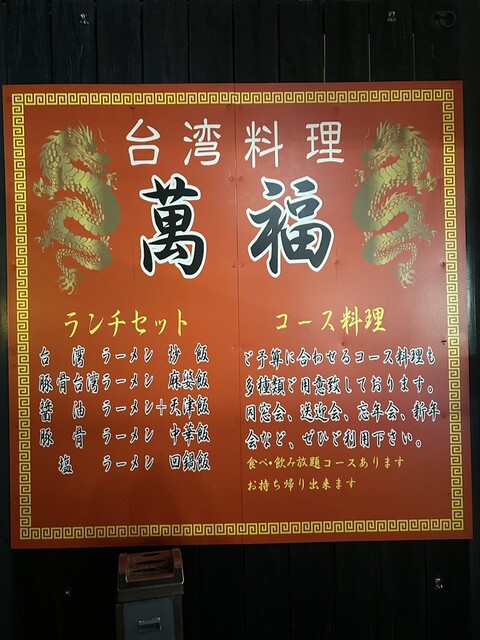 台湾料理
萬福
ランチセット
台湾ラーメン 炒飯
豚骨台湾ラーメン 麻婆飯
醤油ラーメン+天津飯
豚骨ラーメン 中華飯
塩ラーメン 回鍋飯
コース料理
ご予算に合わせるコース料理も
多種類ご用意致しております。
同窓会、送迎会、忘年会、新年
会など、ぜひご利用下さい。
食べ・飲み放題コースあります
お持ち帰り出来ます